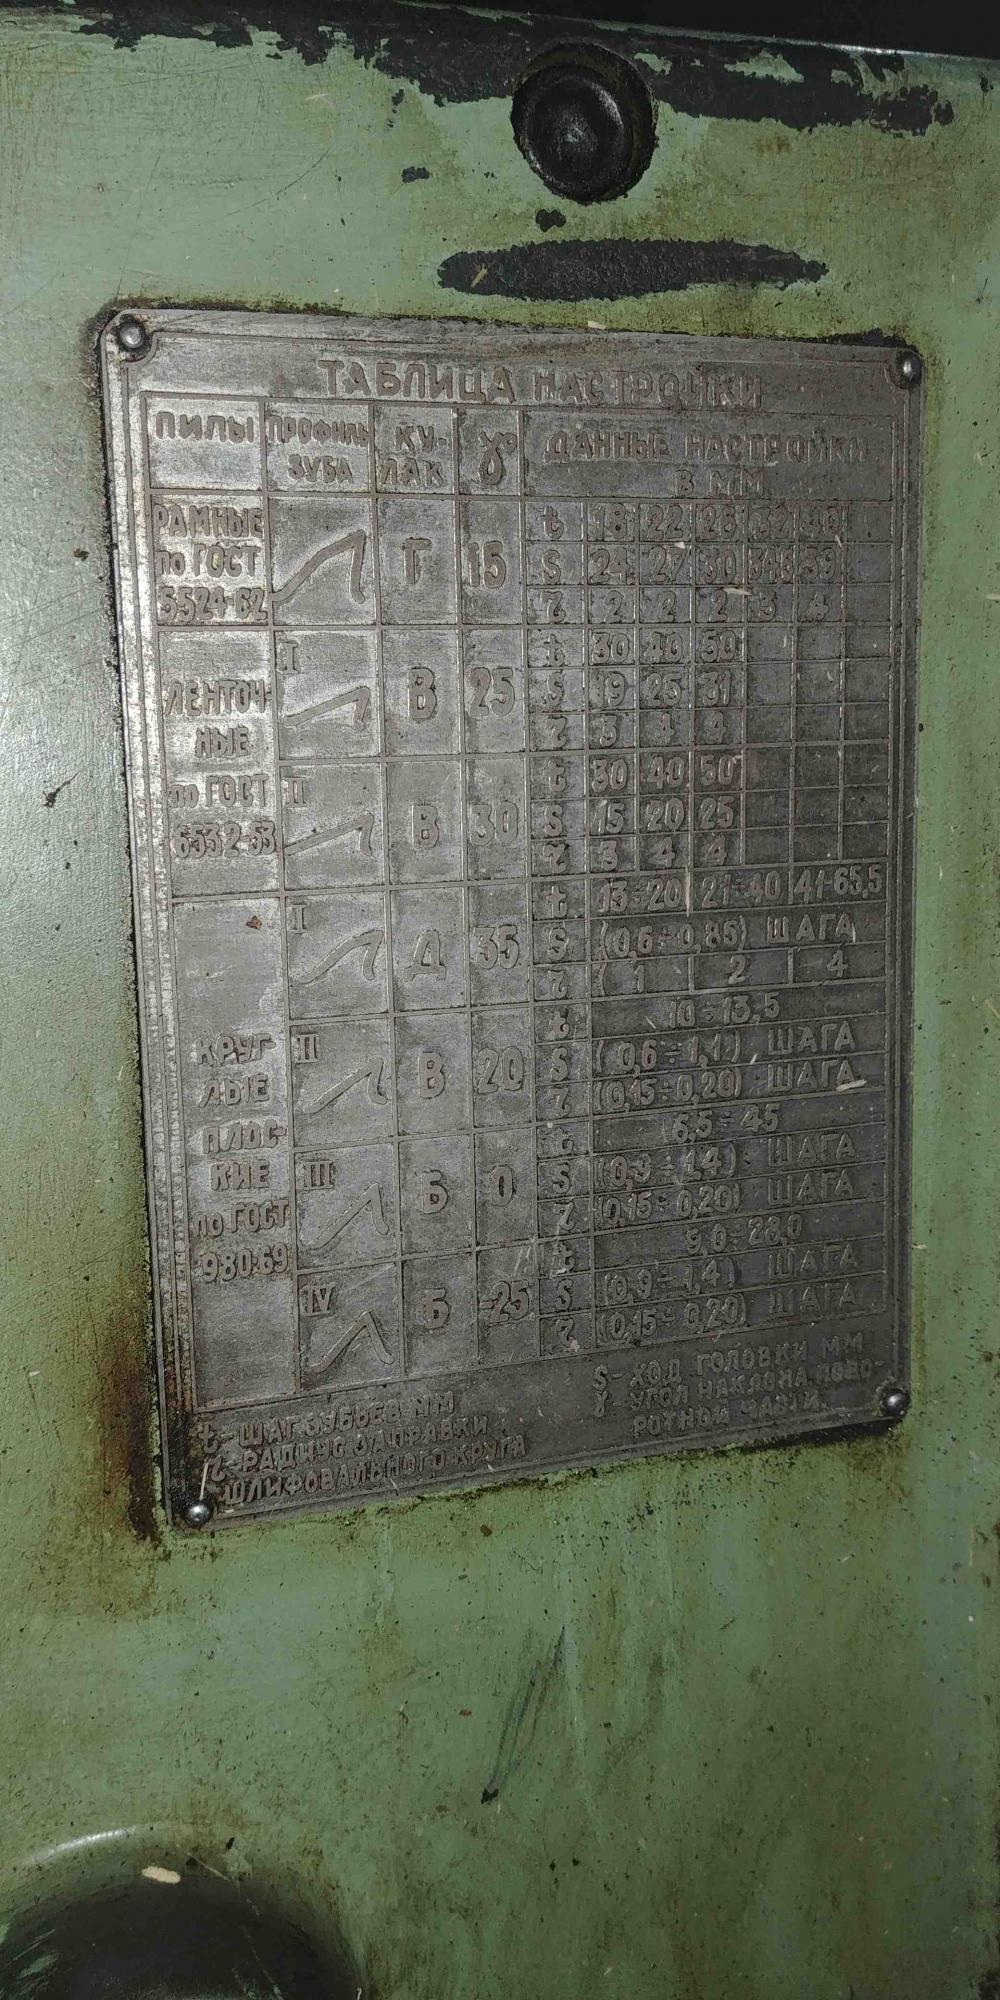 ТАБЛИЦА НАСТРОЙКИ
ПИЛЫ ПРОФИЛЬ ЗУБА КУ-ЛАК γ° ДАННЫЕ НАСТРОЙКИ В ММ
РАМНЫЕ
по ГОСТ
5524-62
Г 15
t 18 22 26 32 40
S 24 27 30 34,5 39
r 2 2 2 3 4
ЛЕНТОЧ-
НЫЕ
по ГОСТ
6532-53
I В 25
t 30 40 50
S 19 25 31
r 3 4 4
II В 30
t 30 40 50
S 15 20 25
r 3 4 4
КРУГ-
ЛЫЕ
ПЛОС-
КИЕ
по ГОСТ
980-69
I Д 35
t 13÷20 21÷40 41-65,5
S (0,6÷0,85) ШАГА
r 1 2 4
II В 20
t 10÷13,5
S (0,6÷1,1) ШАГА
r (0,15÷0,20) ШАГА
III Б 0
t 6,5÷45
S (0,9÷1,4) ШАГА
r (0,15÷0,20) ШАГА
IV Б -25
t 9,0÷28,0
S (0,9÷1,4) ШАГА
r (0,15÷0,20) ШАГА
t-ШАГ ЗУБЬЕВ ММ
r-РАДИУС ЗАПРАВКИ
ШЛИФОВАЛЬНОГО КРУГА
S-ХОД ГОЛОВКИ ММ
γ-УГОЛ НАКЛОНА ПОВО-
РОТНОЙ ЧАСТИ.